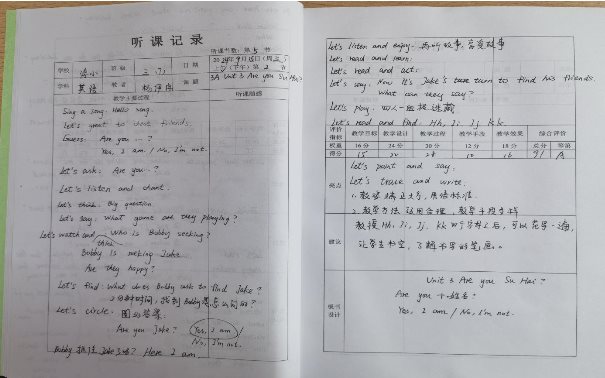 听课记录
听课节数：第5节
学校 班级 三（7） 日期
2024年9月18日（周三）
（下午）第2节
学科 英语 教者 课题 3A Unit 3 Are you Su Hai?
教学主要过程 听课随感
Sing a song: Hello song.
Let's greet to our friends.
Guess: Are you ...?
Yes, I am / No, I'm not.
Let's ask: Are you ...?
Let's listen and chant.
Let's think: Big question
Let's say: What game are they playing?
Let's watch and think who is Bobby seeking?
Bobby is seeking Jake.
Are they happy?
Let's find: What does Bobby ask to find Jake?
Let's circle: 圈出答案
Are you Jake? Yes, I am /
No, I'm not.
Bobby 抓住 Jake Here I am.
Let's listen and enjoy: 再听故事，享受故事
Let's read and learn:
Let's read and act:
Let's say: Now it's Jake's turn to find his friends.
What can they say?
Let's play: 四人一组捉迷藏
Let's read and find: Hh, Ii, Jj, Kk
评价指标 教学目标 教学设计 教学过程 教学手段 教学效果 综合评价
权重 16分 24分 30分 12分 18分 总分 等第
得分 15 10 16 91 A
Let's point and say.
Let's trace and write.
亮点
1. 教态端正大方，用语标准
2. 教学方法运用合理，教学手段多样
建议
教授Hh, Ii, Jj, Kk四个字母之后，可以范写一遍，
让学生书空，了解书写的笔画。
板书设计
Unit 3 Are you Su Hai?
Are you + 姓名?
Yes, I am / No, I'm not.